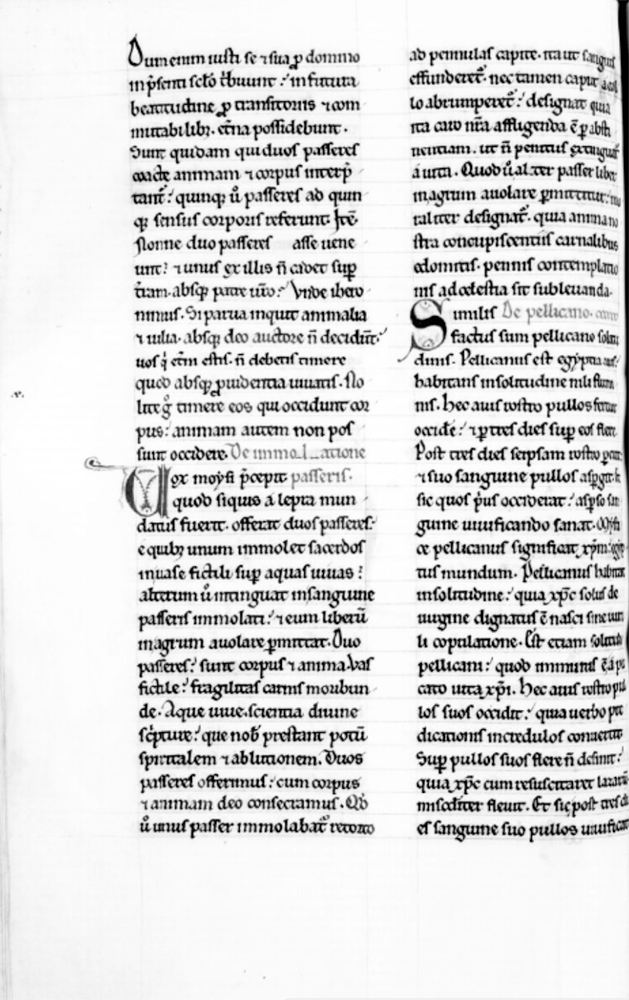 Dum enim iusti se ⁊ sua ꝓ domino
in p̄senti sclo t̄buunt: in futura
beatitudine ꝓ transitoriis ⁊ com
mutabilibꝫ. etna possidebunt.
Sunt quidam qui duos passeres
animam ⁊ corpus interp̄
tant: quinqꝫ ů passeres ad quin
qꝫ sensus corporis referunt. Itē.
Nonne duo passeres asse uene
unt? ⁊ unus ex illis n̄ cadet sup̄
tr̄am. absqꝫ patre uro? Vnde ibero
nimus. Si parua inquit animalia
⁊ uilia. absqꝫ deo auctore n̄ decidunt:
uos q̇ etni estis. n̄ debetis timere
quod absqꝫ ꝓuidentia uiuatis. No
lite g̊ timere eos qui occidunt cor
pus: animam autem non pos
sunt occidere. De immolatione
Lex moysi p̄cepit passeris.
quod siquis a lepra mun
datus fuerit. offerat duos passeres:
e quibꝫ unum immolet sacerdos
in uase fictili sup̄ aquas uiuas:
alterum ů intinguat in sanguine
passeris immolati: ⁊ eum liberū
in agrum auolare ꝑmittat. Duo
passeres: sunt corpus ⁊ anima. Vas
fictile: fragilitas carnis moribun
de. Aque uiue. scientia diuine
sc̄pture: que nob̄ prestant potū
spiritalem ⁊ ablutionem. Duos
passeres offerimus: cum corpus
⁊ animam deo consecramus. Qđ
ů unus passer immolabat̄ retorto
ad pennulas capite. ita ut sanguis
effunderet̄. nec tamen caput a col
lo abrumperet̄: designat quia
ita caro nr̄a affligenda ē ꝑ absti
nentiam. ut n̄ penitus extinguat̄
a uita. Quod ů alter passer liber
in agrum auolare ꝑmittitur:
taliter designat̄. quia anima no
stra concupiscentiis carnalibus
edomitis. pennis contemplatio
nis ad celestia sit subleuanda.
Similis De pellicano.
factus sum pellicano solitu
dinis. Pellicanus est egyptia auis:
habitans in solitudine nili flumi
nis. Hec auis rostro pullos fertur
occidere: ⁊ ꝑ tres dies sup̄ eos flere.
Post tres dies seipsam rostro ꝑcutit:
⁊ suo sanguine pullos aspgit. ⁊
sic quos p̍us occiderat: asperso san
guine uiuificando sanat.
ce pellicanus significat xp̄m: egyp
tus mundum. Pellicanus habitat
in solitudine: quia xp̄c solus de
uirgine dignatus ē nasci sine uiri
li copulatione. Est etiam solitudo
pellicani: quod immunis ē a pec
cato uita xp̄i. Hec auis rostro pul
los suos occidit: quia uerbo pre
dicationis incredulos conuertit.
Sup̄ pullos suos flere n̄ desinit:
quia xp̄c cum resuscitaret lazarū
misericorditer fleuit. Et sic post tres di
es sanguine suo pullos uiuificat